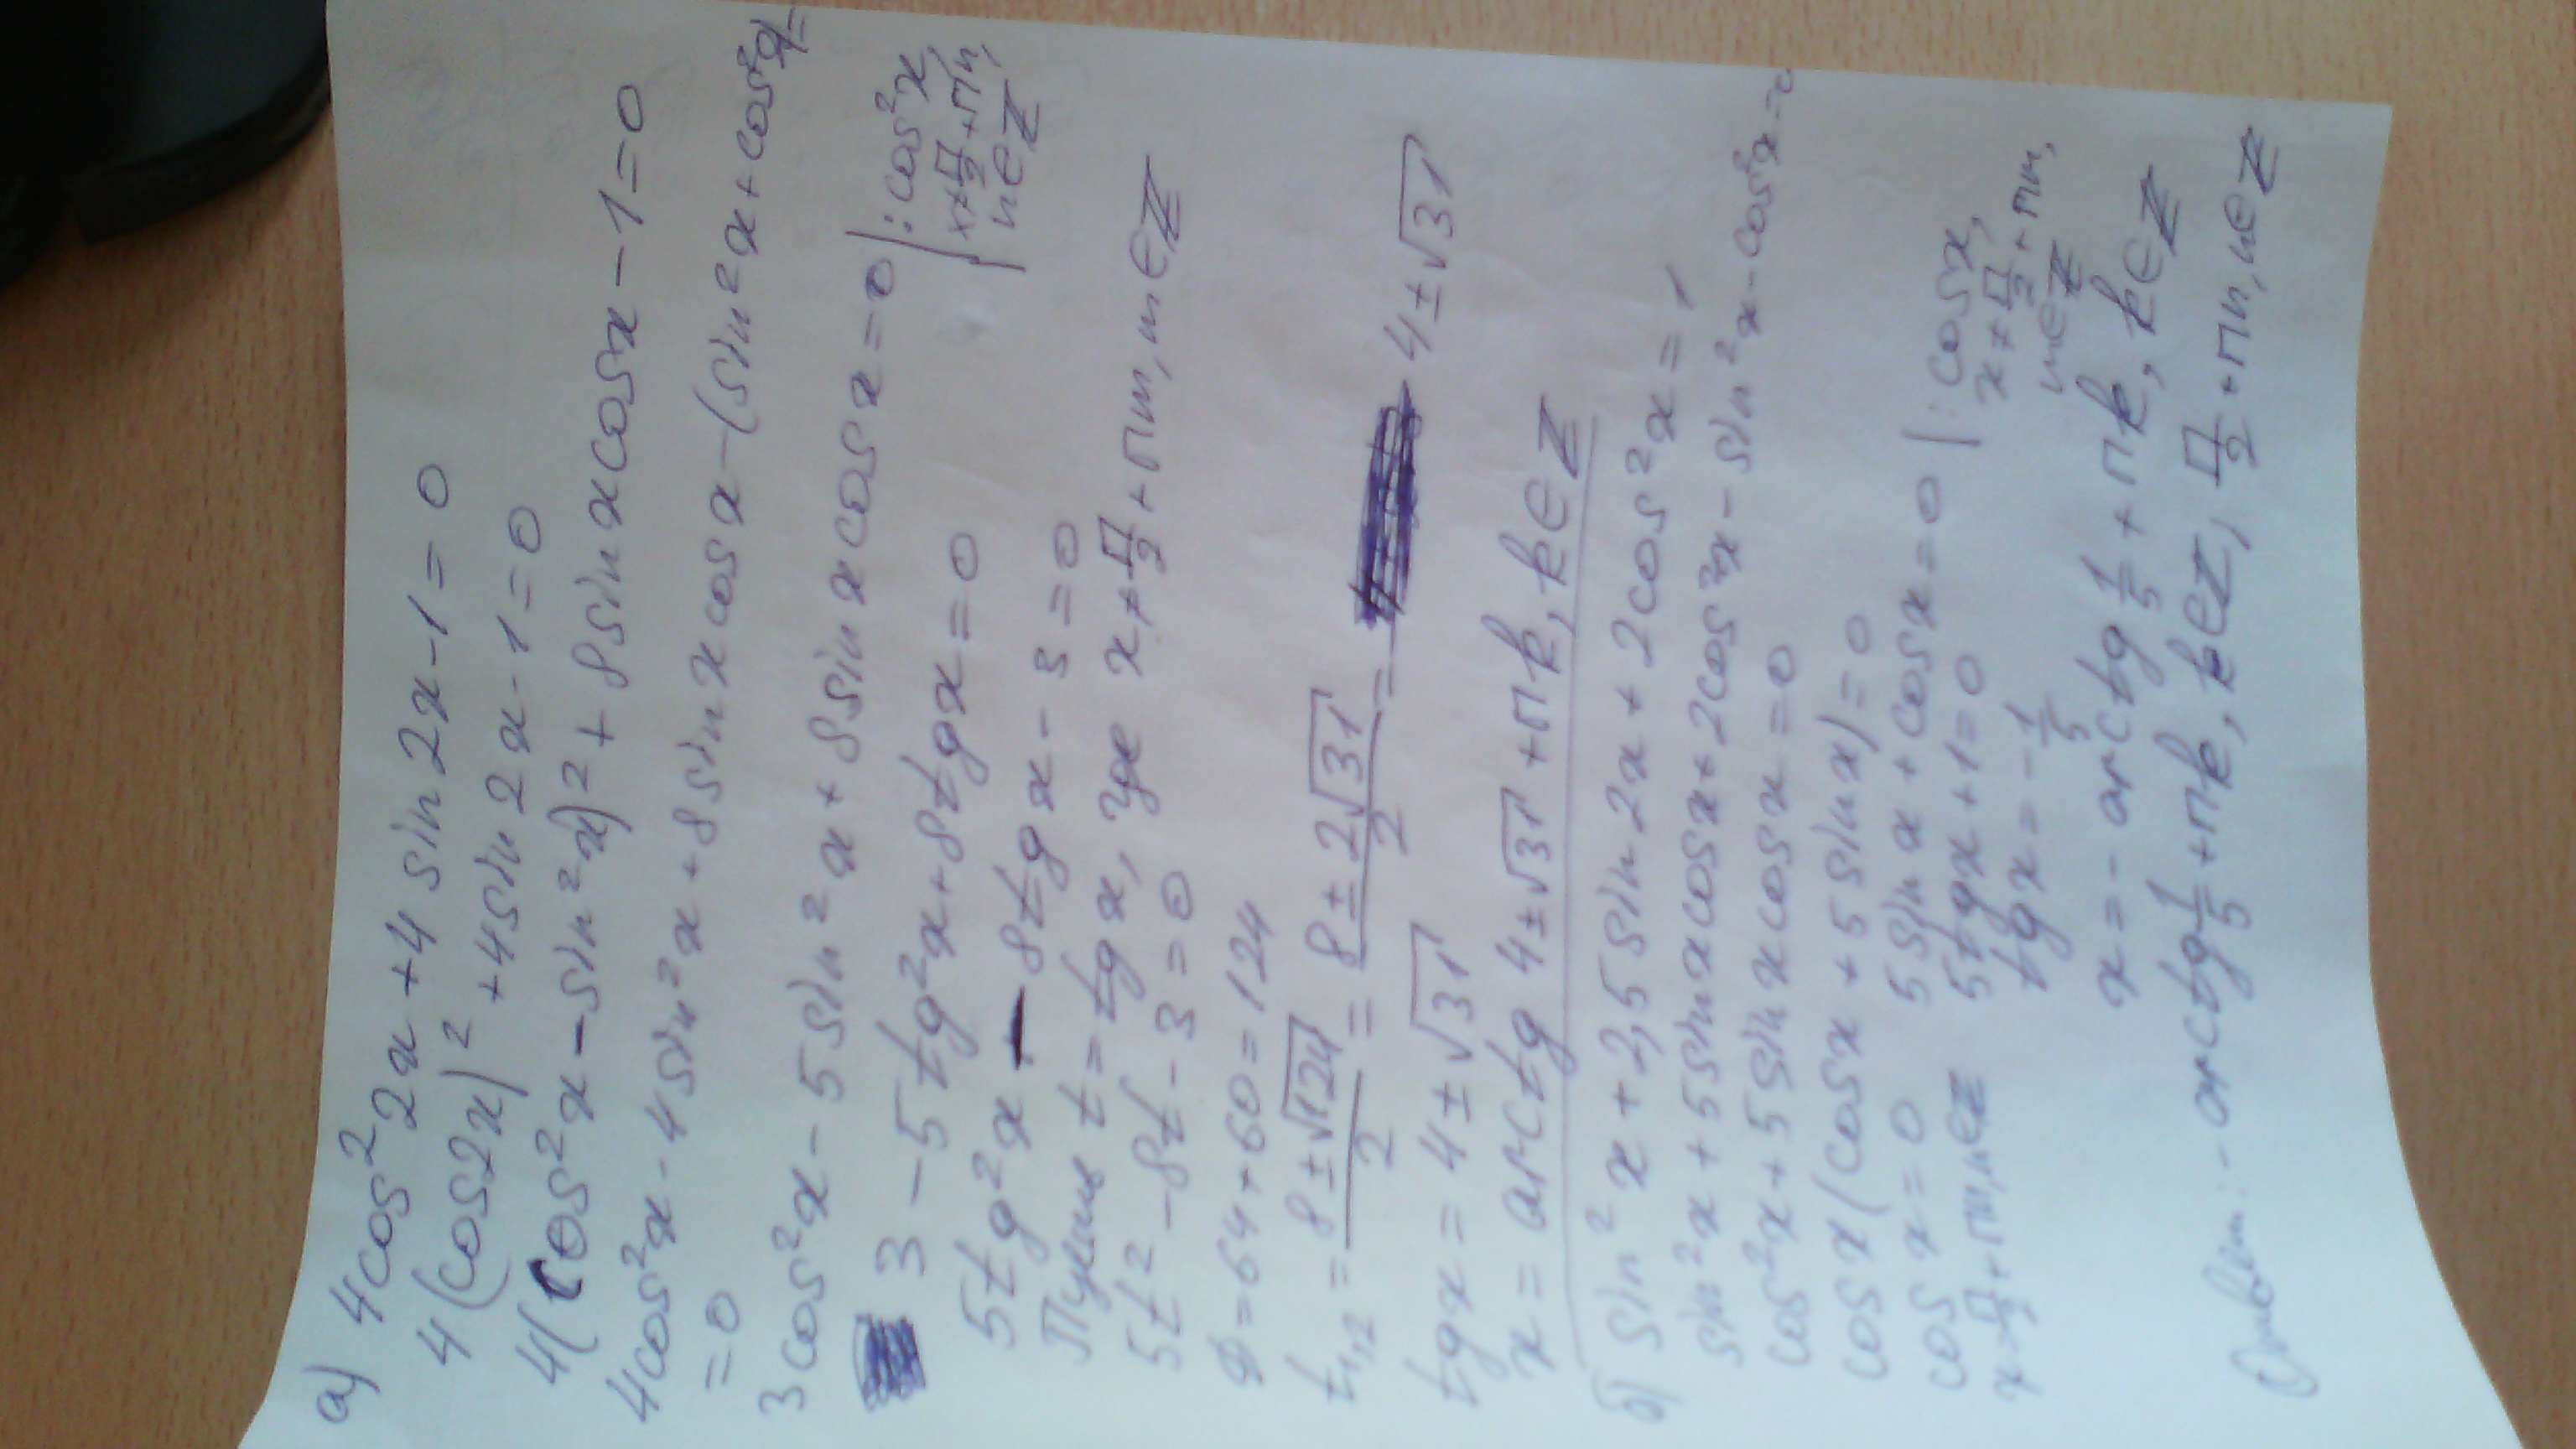 а) 4cos²2x + 4 sin 2x - 1 = 0
4(cos2x)² + 4sin 2x - 1 = 0
4(cos²x - sin²x)² + 8sin x cosx - 1 = 0
4cos²x - 4sin²x + 8sin x cosx - (sin²x + cos²x) =
= 0
3cos²x - 5sin²x + 8sin x cosx = 0 | : cos²x,
x ≠ π/2 + πn,
n ∈ Z
3 - 5tg²x + 8tgx = 0
5tg²x - 8tgx - 3 = 0
Пусть t = tgx, где x ≠ π/2 + πn, n ∈ Z
5t² - 8t - 3 = 0
D = 64 + 60 = 124
t₁,₂ = (8 ± √124)/2 = (8 ± 2√31)/2 = 4 ± √31
tgx = 4 ± √31
x = arctg 4 ± √31 + πk, k ∈ Z
б) sin²x + 2,5sin2x + 2cos²x = 1
sin²x + 5sinxcosx + 2cos²x - sin²x - cos²x = 0
cos²x + 5sinxcosx = 0
cosx(cosx + 5sinx) = 0
cosx = 0 5sinx + cosx = 0 | : cosx,
x ≠ π/2 + πn,
n ∈ Z
x = π/2 + πn, n ∈ Z 5tgx + 1 = 0
tgx = -1/5
x = -arctg 1/5 + πk, k ∈ Z
Ответ: -arctg 1/5 + πk, k ∈ Z, π/2 + πn, n ∈ Z